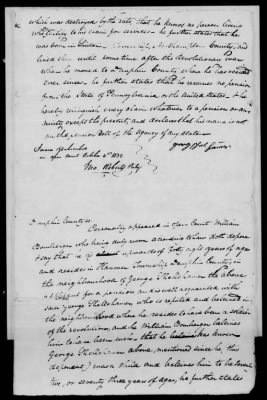 which was destroyed by the rats; that he knows no person living
who testify to his claim for services— he further states that he
was born in County, Northampton County, and
lived there until some time after the Revolutionary war
when he moved to Dauphin County where he has resided
ever since, he further states that he receives no pension
from the State of Pennsylvania, or the United States, & he
hereby relinquish every claim whatever to a pension or any
nuity except the present, and declares that his name is not
on the pension roll of the Agency of any state
Sworn & subscribed
in open court October 6th 1832
Roberts Proty
Dauphin County ss.
Personally appeared in Open Court William
who being duly sworn according to law doth depose
& say that he is upwards of Forty eight years of age
and resides in Hanover Township Dauphin County in
the neighbourhood of George the above
applicant for a pension and is well acquainted with
said George who is reputed and believed in
the neighborhood where he resides to have been a soldier
of the revolution, and he William believes
him to have been such, that he has known
George above mentioned since he, this
deponent, was a child and believes him to be seventy
two, or seventy three years of age, he further states